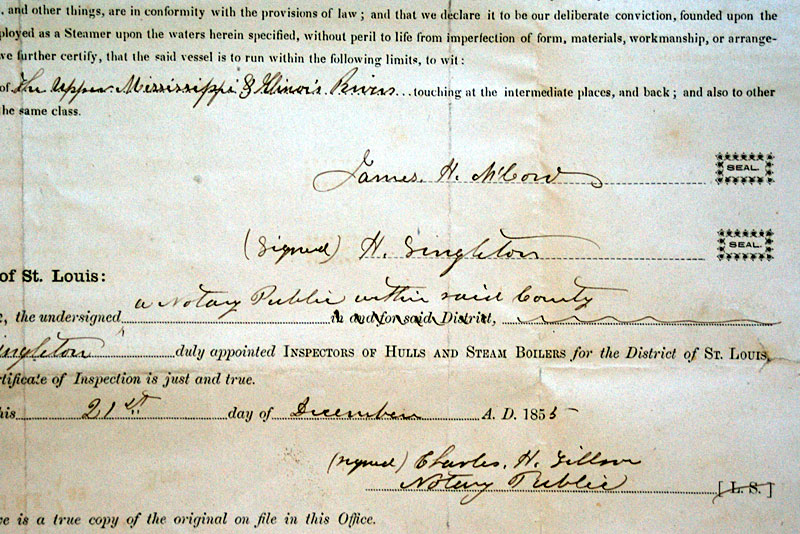 , and other things, are in conformity with the provisions of law ; and that we declare it to be our deliberate conviction, founded upon the
ployed as a Steamer upon the waters herein specified, without peril to life from imperfection of form, materials, workmanship, or arrange-
ve further certify, that the said vessel is to run within the following limits, to wit :
of The Upper Mississippi & Illinois Rivers touching at the intermediate places, and back ; and also to other
he same class.
James H. McCord SEAL.
(Signed) H. Singleton SEAL.
of St. Louis:
a Notary Public within said County
, the undersigned in and for said District,
ingleton duly appointed INSPECTORS OF HULLS AND STEAM BOILERS for the District of ST. LOUIS,
rtificate of Inspection is just and true.
his 21st day of December A. D. 1855
(signed) Charles. H.
Notary Public [L. S.]
e is a true copy of the original on file in this Office.